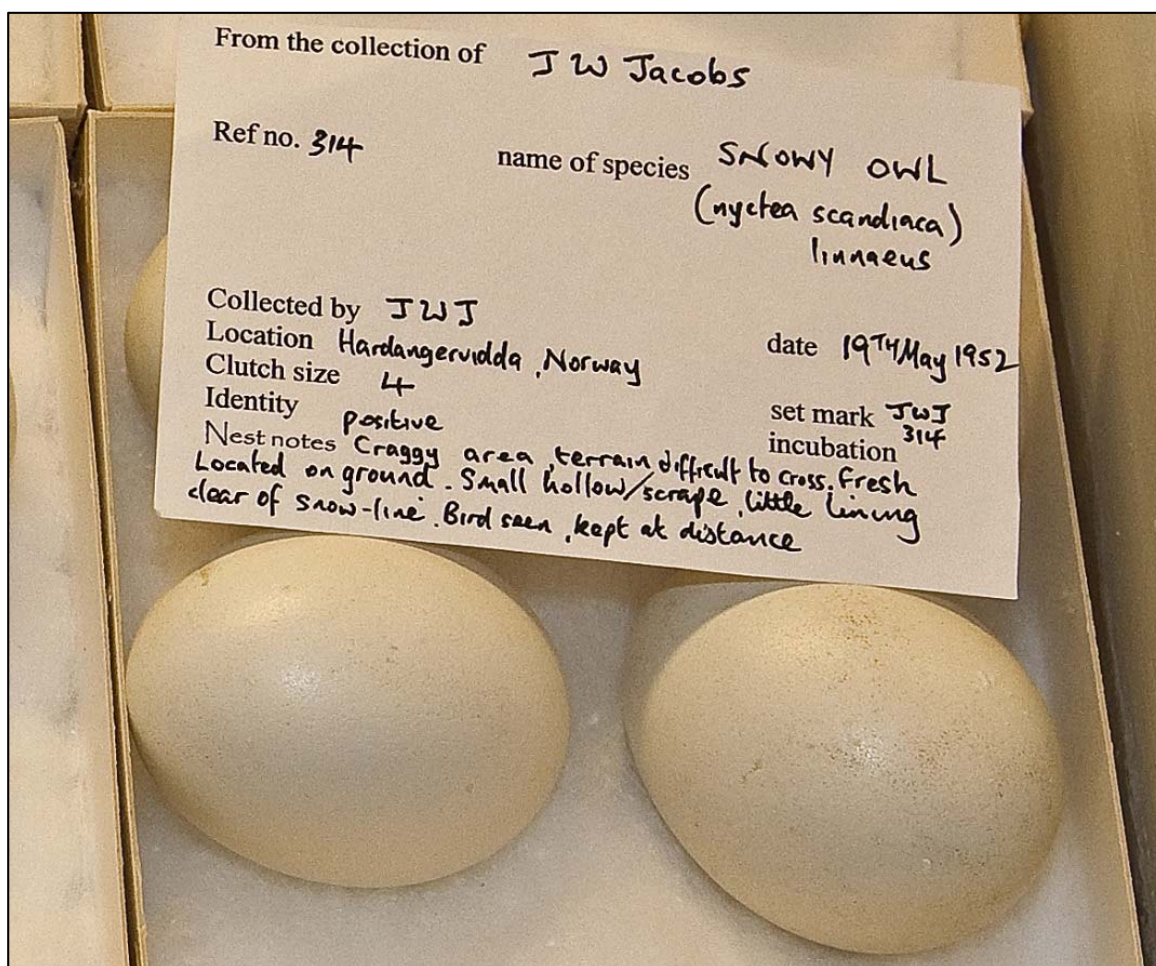 From the collection of J W Jacobs
Ref no. 314 name of species SNOWY OWL
(nyctea scandiaca)
linnaeus
Collected by JWJ
Location Hardangervidda, Norway date 19TH May 1952
Clutch size 4
Identity positive set mark JWJ 314
Nest notes Craggy area, terrain difficult to cross. incubation Fresh
Located on ground. Small hollow/scrape, little lining
clear of snow-line. Bird seen, kept at distance